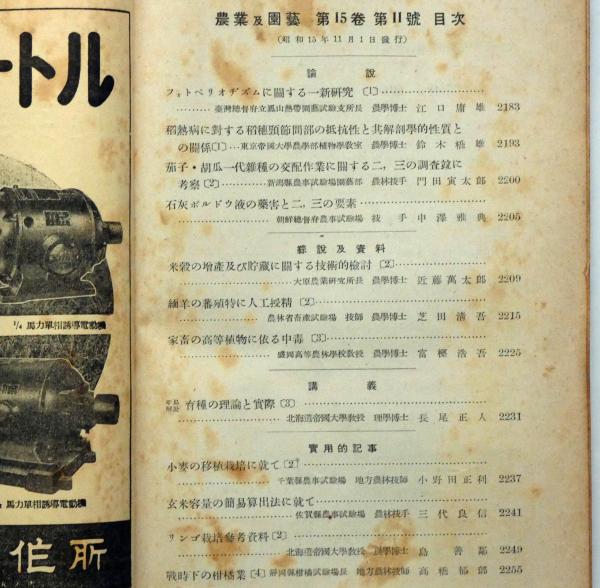 農業及園藝 第15卷 第11號 目次
(昭和15年11月1日發行)
論說
フォトペリオヂズムに關する一新硏究〔1〕
臺灣總督府立鳳山熱帶園藝試驗支所長 農學博士 江口庸雄 2183
稻熱病に對する稻穗頸節間部の抵抗性と其解剖學的性質と
の關係〔1〕…東京帝國大學農學部植物學敎室 農學博士 鈴木橋雄 2193
茄子・胡瓜一代雜種の交配作業に關する二,三の調査竝に
考察〔2〕…新潟縣農事試驗場園藝部 農林技手 門田寅太郎 2200
石灰ボルドウ液の藥害と二,三の要素
朝鮮總督府農事試驗場 技手 中澤雅典 2205
綜說及資料
米穀の增產及び貯藏に關する技術的檢討〔2〕
大原農業硏究所長 農學博士 近藤萬太郎 2209
緬羊の蕃殖特に人工授精〔2〕
農林省畜產試驗場 技師 農學博士 芝田淸吾 2215
家畜の高等植物に依る中毒〔3〕
盛岡高等農林學校敎授 農學博士 富樫浩吾 2225
講義
育種の理論と實際〔3〕
北海道帝國大學敎授 理學博士 長尾正人 2231
實用的記事
小麥の移植栽培に就て〔2〕
千葉縣農事試驗場 地方農林技師 小野田正利 2237
玄米容量の簡易算出法に就て
佐賀縣農事試驗場 農林技手 三代良信 2241
リンゴ栽培參考資料〔2〕
北海道帝國大學敎授 農學博士 島善鄰 2249
戰時下の柑橘業〔4〕靜岡縣柑橘試驗場長 地方農林技師 高橋郁郎 2255
ートル
1/4 馬力單相誘導電動機
馬力單相誘導電動機
作所